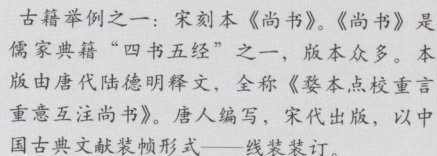 古籍举例之一：宋刻本《尚书》。《尚书》是
儒家典籍“四书五经”之一，版本众多。本
版由唐代陆德明释文，全称《婺本点校重言
重意互注尚书》。唐人编写，宋代出版，以中
国古典文献装帧形式——线装装订。